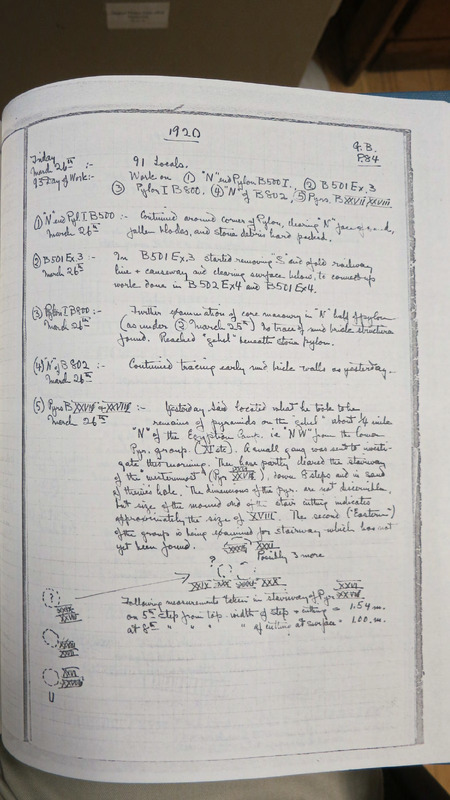 1920
G.B.
P.84
Friday
March 26th :-
93 Day of Work:-
91 Locals.
Work on (1) "N" end Pylon B500 I. (2) B501 Ex.3
(3) Pylon I B800. (4) "N" of B802, (5) Pyrs. B XXVII XXVIII
(1) "N" end Pyl. I B500 :-
March 26th
Continued around corner of Pylon, clearing "N" face of
fallen blocks, and stone debris hard packed.
(2) B501 Ex.3 :-
March 26th
In B501 Ex.3 started removing "S" end of old railway
line + causeway and clearing surface below, to connect up
work done in B502 Ex4 and B501 Ex4.
(3) Pylon I B800 :-
March 26th
Further examination of core masonry in "N" half of pylon
(as under (2) March 25th) No trace of mud brick structure
found. Reached "gebel" beneath stone pylon.
(4) "N" of B802 :-
March 26th
Continued tracing early mud brick walls as yesterday.
(5) Pyrs B XXVII + XXVIII :-
March 26th
Yesterday Said located what he took to be
remains of pyramids on the "gebel" about 1/4 mile
"N" of the Egyptian Camp, i.e "NW" from the lower
Pyr. group. (XI etc). A small gang was sent to investi-
gate this morning. They have partly cleared the stairway
of the westernmost (Pyr XXVIII), down 8 steps and in sand
of thieves hole. The dimensions of the pyr. are not discernible,
but size of the mound and of the stair cutting indicates
approximately the size of XVIII. The second ("Eastern")
of the groups is being examined for stairway which has not
yet been found.
Possibly 3 more
?
XXIX XXX
Following measurements taken in stairway of Pyr XXVIII
on 5th step from top. width of step + cutting = 1.54 m.
at 8th " " " " of cutting at surface = 1.00. m.
?